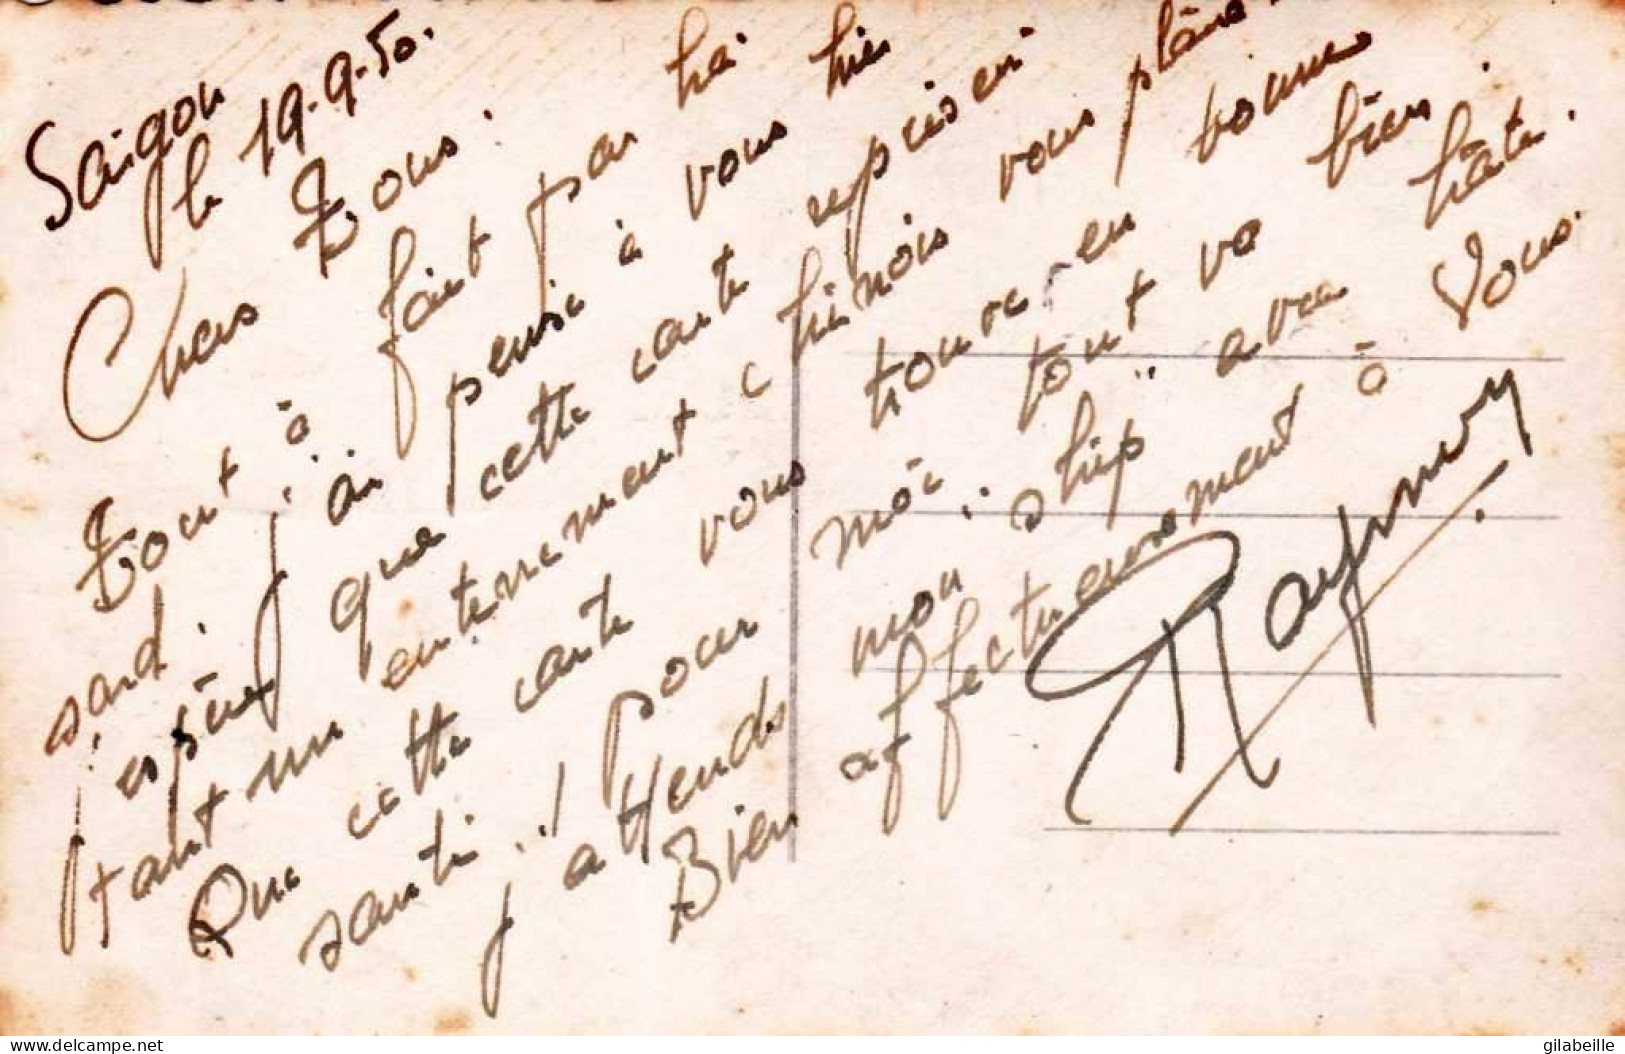 Saigon
le 19-9-50.
Chers Tous.
Tout à fait par ha
sard. j'ai pensé à vous hier
j'espère que cette carte représen
tant un enterrement chinois vous plaira
Que cette carte vous trouve en bonne
santé ! Pour moi tout va bien.
j'attends mon "ship" avec hâte.
Bien affectueusement à Vous.
Raymond
delcampe.net
gilabeille